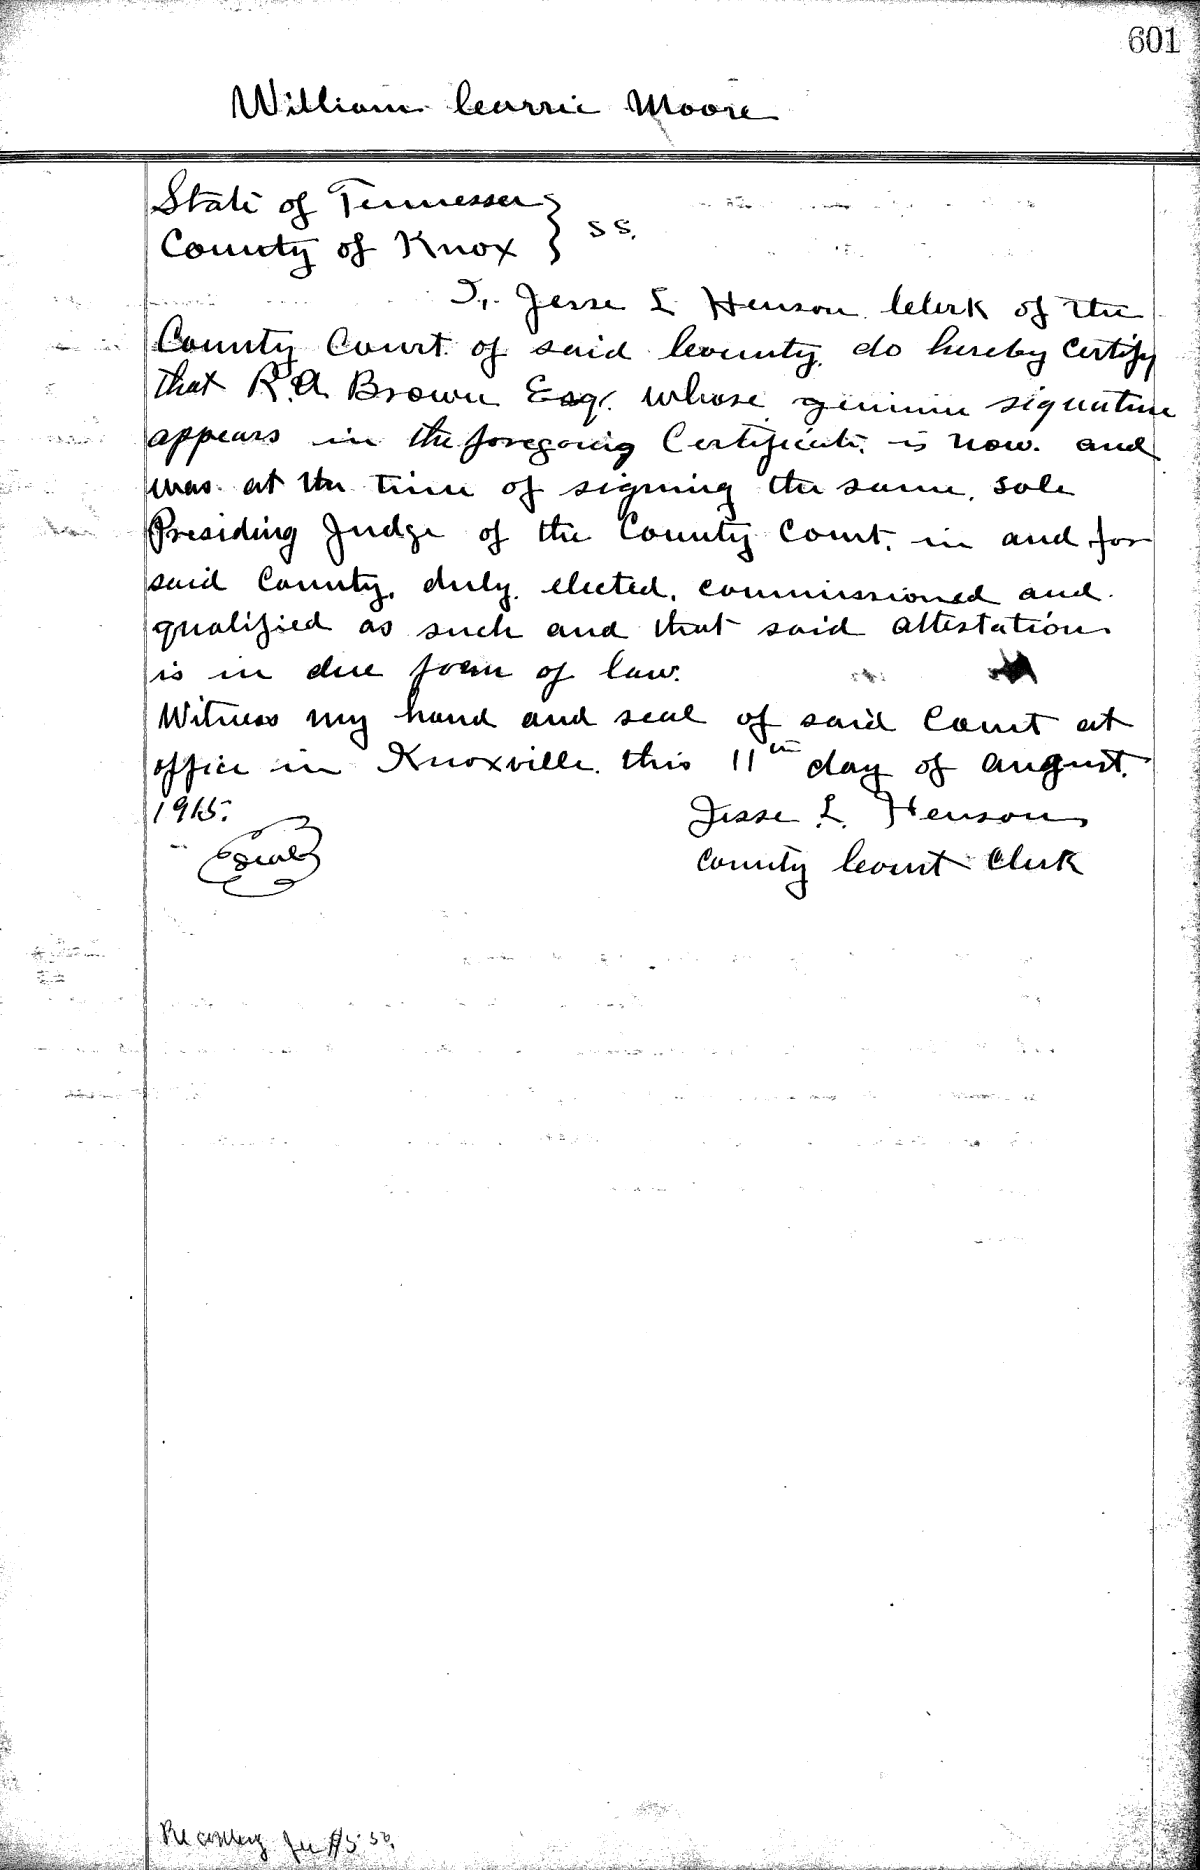 601
William Currie Moore
State of Tennessee
County of Knox } SS.
I, Jesse L Henson Clerk of the
County Court of said County, do hereby certify
that R.A Brown Esq. whose genuine signature
appears in the foregoing Certificate, is now. and
was at the time of signing the same, sole
Presiding Judge of the County Court, in and for
said County, duly elected, commissioned and
qualified as such and that said attestation
is in due form of law.
Witness my hand and seal of said Court at
office in Knoxville this 11th day of August.
1915.
Jesse L. Henson
Seal
County Court Clerk
Recording fee $5.50